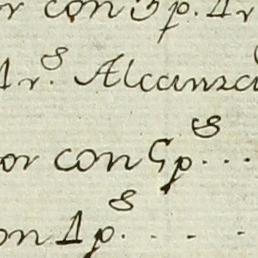 or con 5 p. 1 r
1 r.s Alcanza
or con 5 p.s...
on 1 p.s . . . .